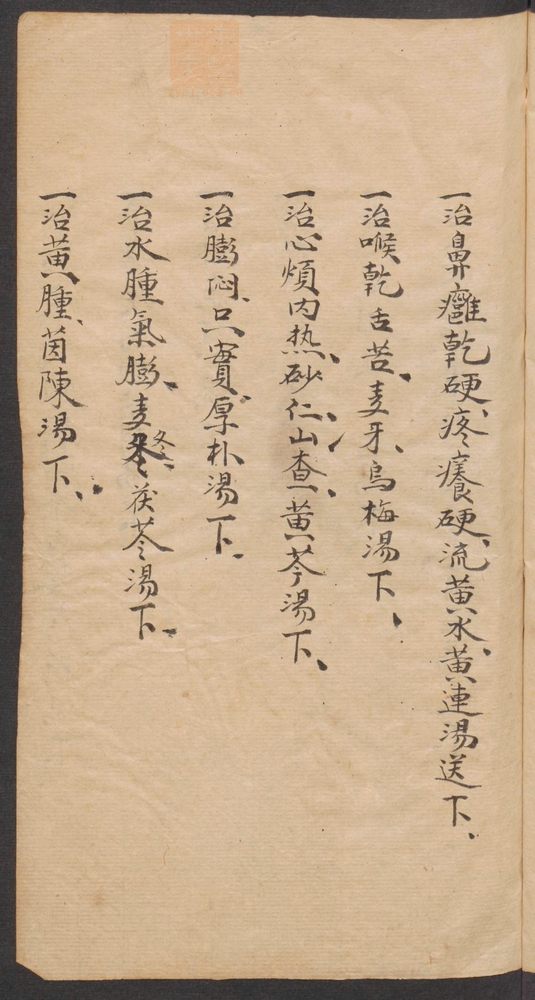 一治鼻癰乾硬、疼癢硬、流黄水、黄連湯送下、
一治喉乾舌苦、麦牙、烏梅湯下、
一治心煩内热、砂仁、山查、黄芩湯下、
一治膨悶、只實厚朴湯下、
一治水腫氣膨、麦冬、茯苓湯下、
一治黄腫、茵陳湯下、